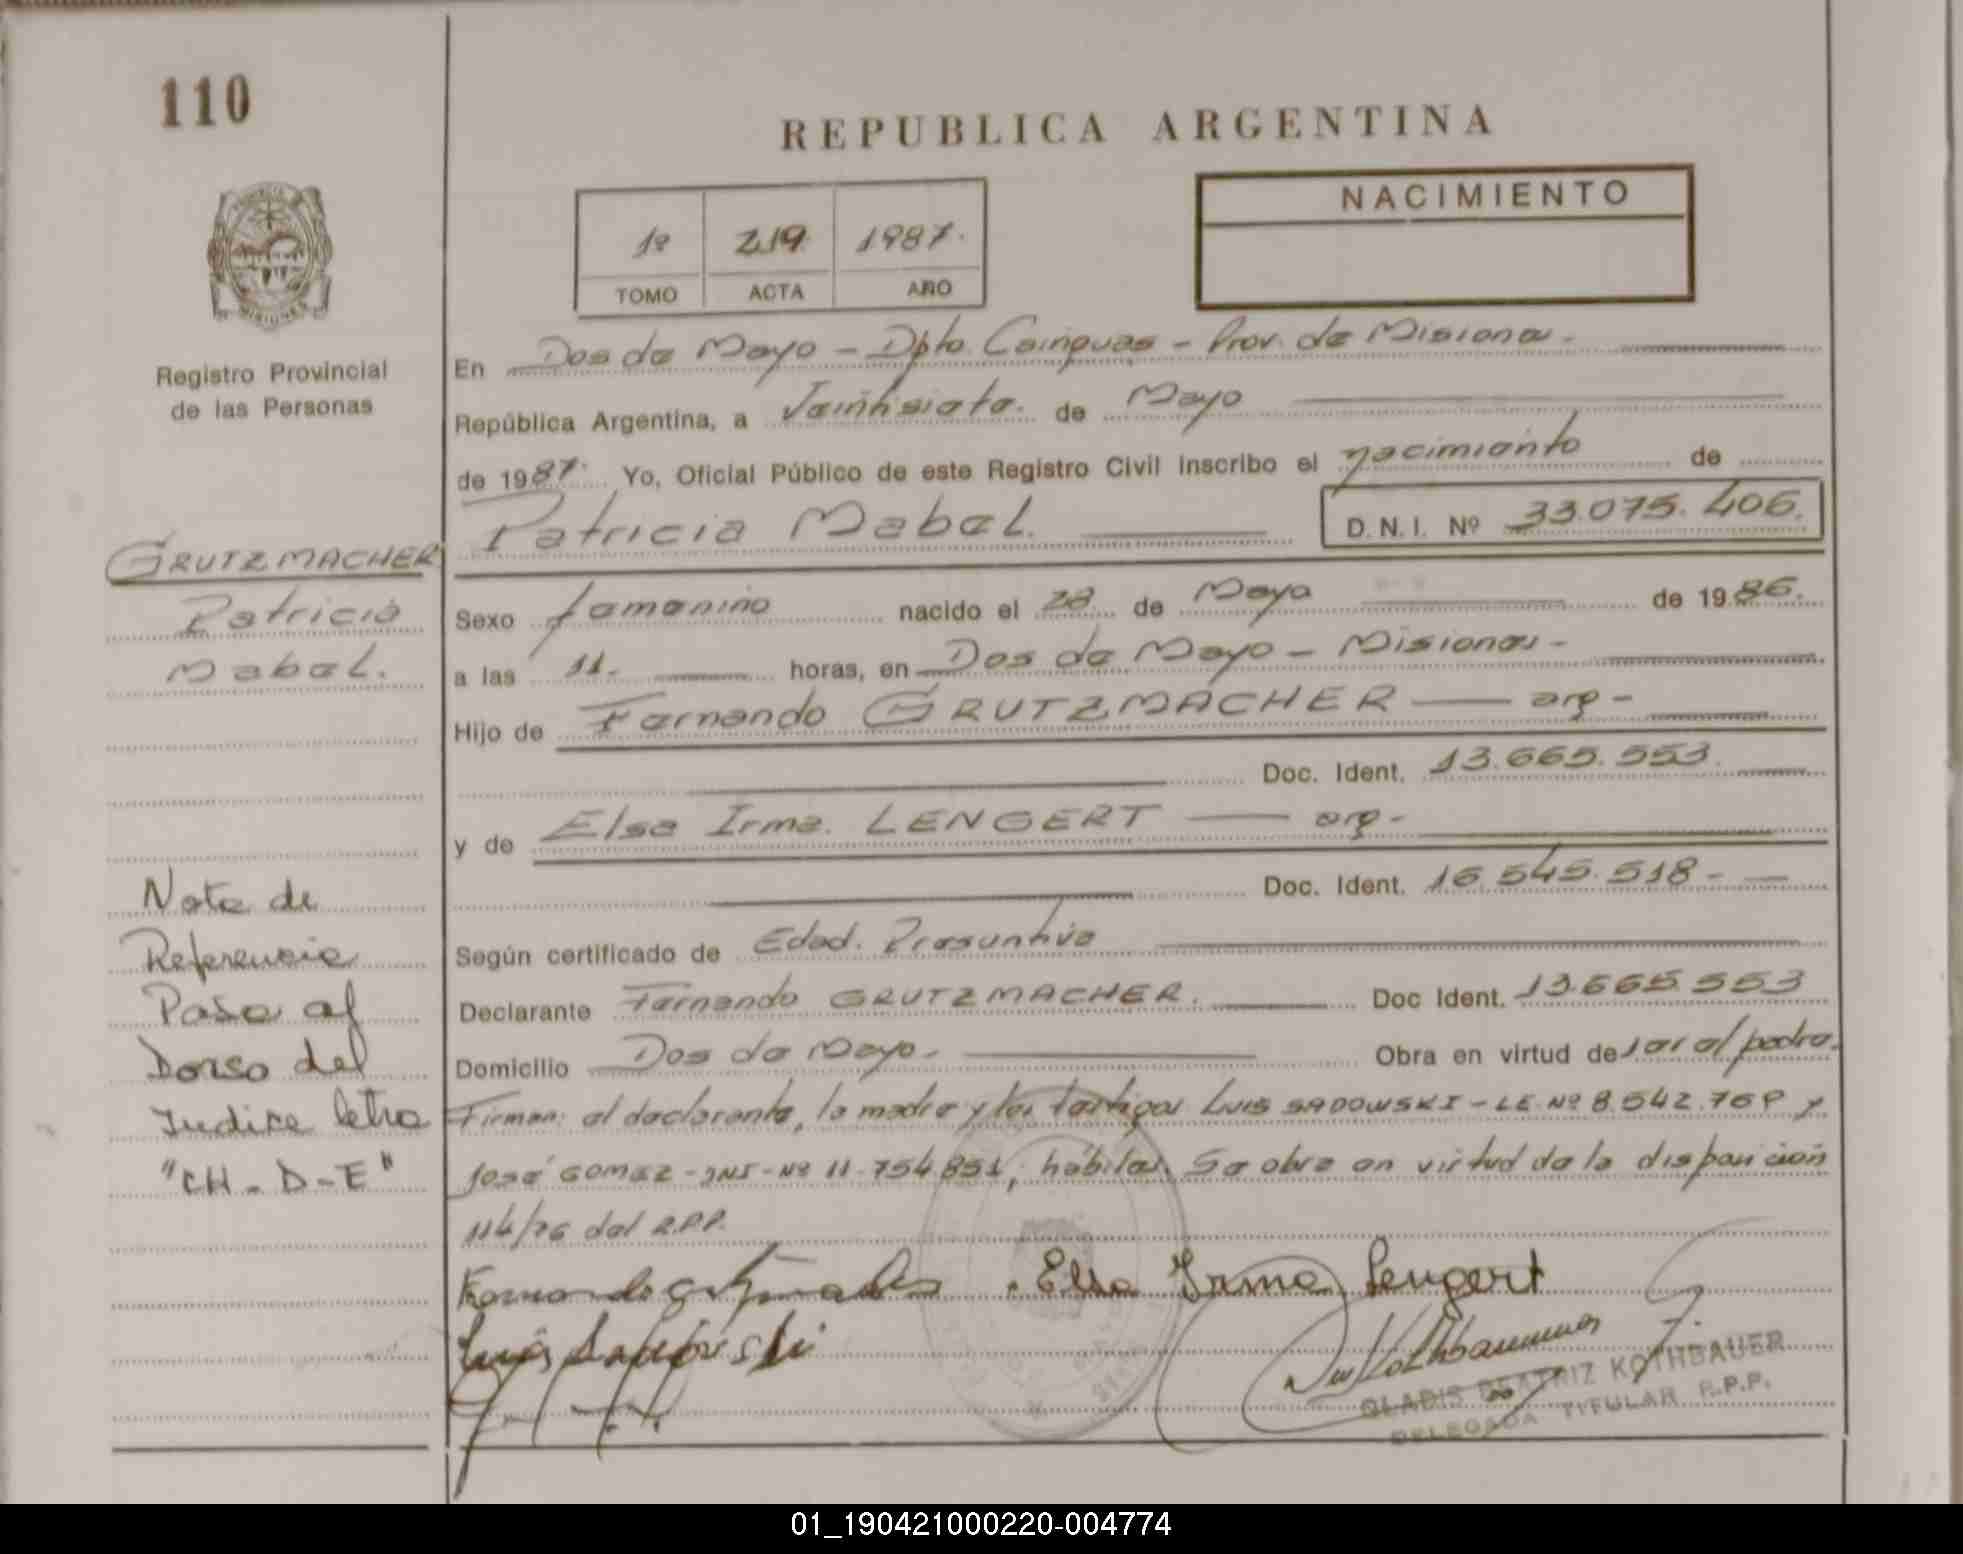 110
REPUBLICA ARGENTINA
NACIMIENTO
1º 219 1987.
TOMO ACTA AÑO
MISIONES
Registro Provincial
de las Personas
En Dos de Mayo - Dpto. Cainguas - Prov. de Misiones.
República Argentina, a Veintisiete. de Mayo
de 1987. Yo, Oficial Público de este Registro Civil inscribo el nacimiento de
Patricia Mabel.
D.N.I. Nº 33.075.406.
GRUTZMACHER
Patricia
Mabel.
Sexo femenino nacido el 28 de Mayo de 1986.
a las 11. horas, en Dos de Mayo - Misiones -
Hijo de Fernando GRUTZMACHER — arg -
Doc. Ident. 13.665.553.
y de Elsa Irma. LENGERT — arg -
Doc. Ident. 16.545.518 -
Según certificado de Edad. Presuntiva
Declarante Fernando GRUTZMACHER. Doc Ident. 13.665.553
Domicilio Dos de Mayo. Obra en virtud de ser el padre.
Firman: el declarante, la madre y los testigos LUIS SADOWSKI - LE. Nº 8.542.769 y
José GOMEZ - DNI - Nº 11.754.851, hábiles. Se obra en virtud de la disposición
114/76 del R.P.P.
Nota de
Referencia
Pasa al
Dorso del
Indice letra
"CH - D - E"
Elsa Irma Lengert
Luis Sadowski
GLADIS BEATRIZ KOTHBAUER
DELEGADA TITULAR R.P.P.
01_190421000220-004774